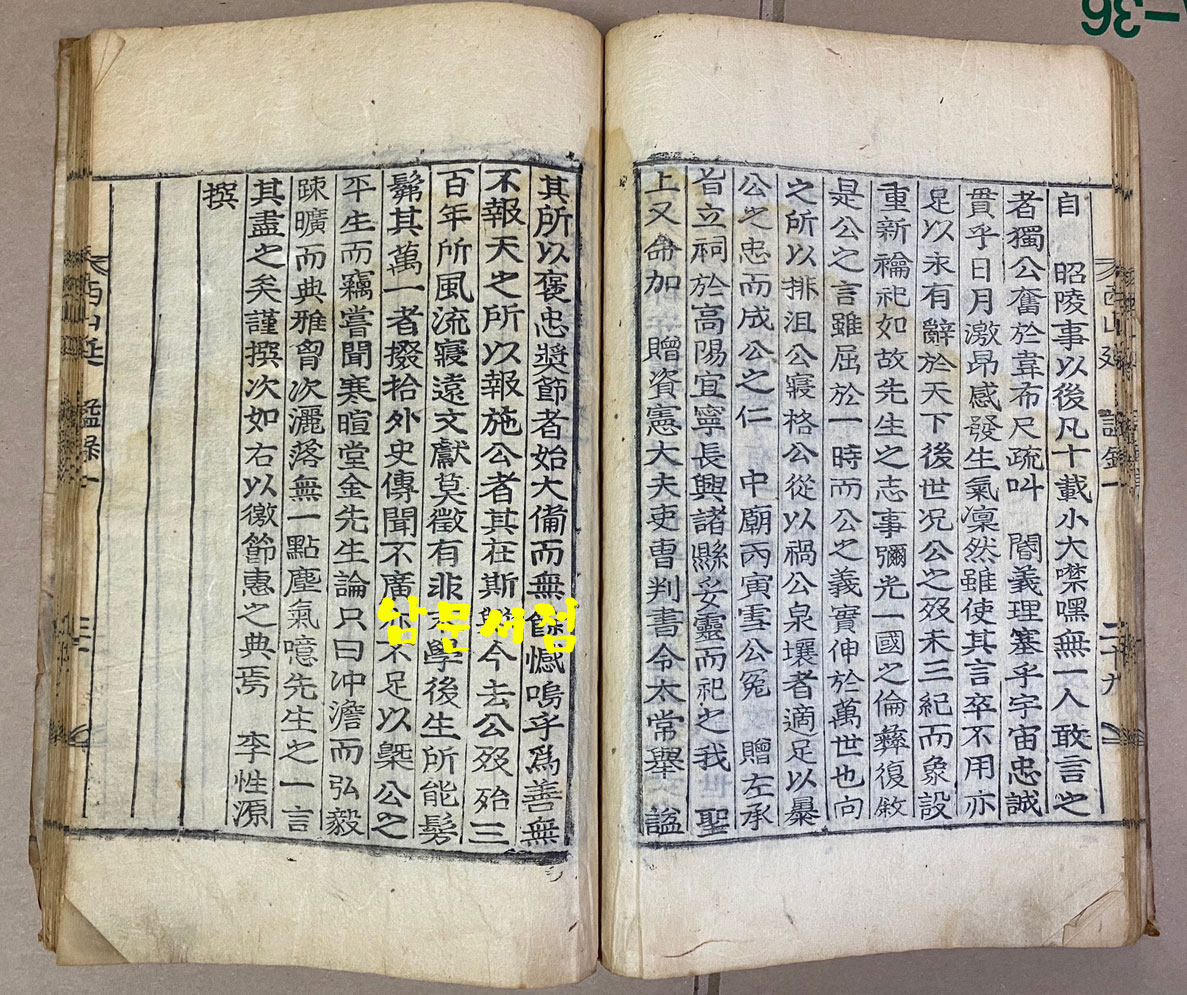 自 昭陵事以後凡十載小大噤嘿無一人敢言之
者獨公奮於韋布尺疏叫 閽義理塞乎宇宙忠誠
貫乎日月激昂感發生氣凜然雖使其言卒不用亦
足以永有辭於天下後世况公之歿未三紀而象設
重新禴祀如故先生之志事彌光一國之倫彝復敘
是公之言雖屈於一時而公之義實伸於萬世也向
之所以排沮公寢格公從以禍公泉壤者適足以暴
公之忠而成公之仁 中廟丙寅雪公冤 贈左承
旨立祠於高陽宜寧長興諸縣妥靈而祀之我 聖
上又命加 贈資憲大夫吏曹判書令太常舉 謚
其所以褒忠奬節者始大備而無餘憾嗚乎爲善無
不報天之所以報施公者其在斯歟今去公歿殆三
百年所風流寢遠文獻莫徵有非 學後生所能髣
髴其萬一者掇拾外史傳聞不廣 不足以槩公之
平生而竊嘗聞寒暄堂金先生論只曰冲澹而弘毅
疎曠而典雅胷次灑落無一點塵氣噫先生之一言
其盡之矣謹撰次如右以徼節惠之典焉 李性源
撰
삼문서점
-36